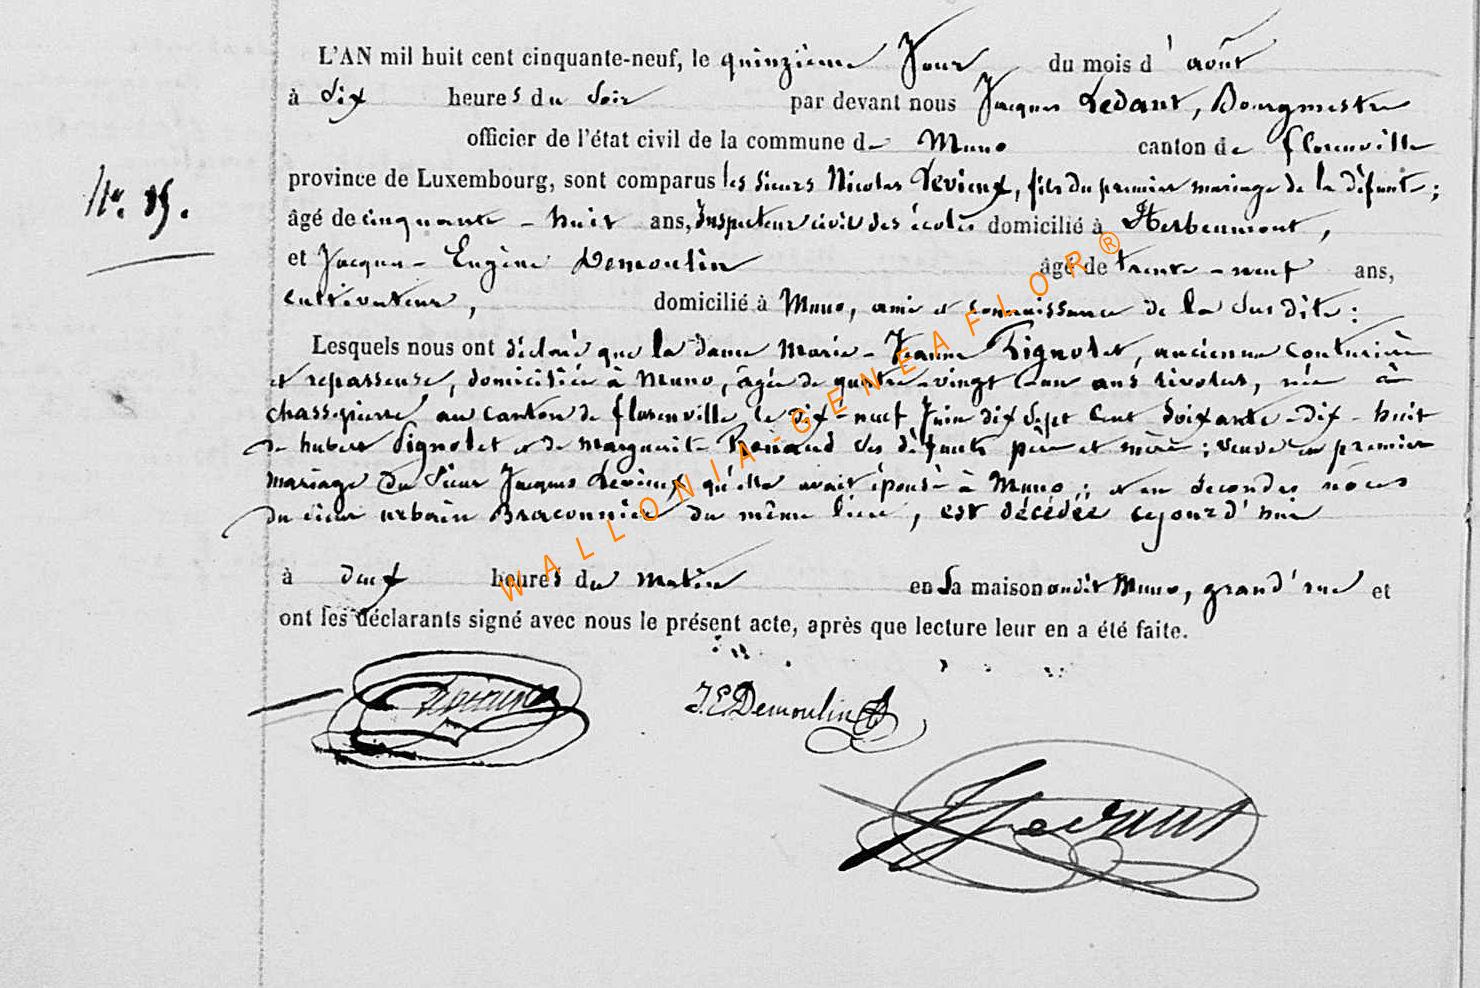 L'AN mil huit cent cinquante-neuf, le quinzième Jour du mois d'août
à Six heures du Soir par devant nous Jacques Ledant, Bourgmestre
officier de l'état civil de la commune de Muno canton de florenville
province de Luxembourg, sont comparus les Sieurs Nicolas Devieux, fils du premier mariage de la défunte;
N° 15.
âgé de cinquante-huit ans, Inspecteur civil des écoles domicilié à Herbeumont,
et Jacques-Eugène Demoulin âgé de trente-neuf ans,
cultivateur, domicilié à Muno, ami et connaissance de la susdite:
Lesquels nous ont déclaré que la dame Marie-Jeanne Pignolet, ancienne couturière
et repasseuse, domiciliée à Muno, âgée de quatre-vingt-un ans révolus, née à
chassepierre au canton de florenville le dix-neuf Juin dix Sept Cent Soixante-dix-huit
de hubert Pignolet et de Marguerite Renaud ses défunts père et mère; veuve en premier
mariage du Sieur Jacques Devieux qu'elle avait épousé à Muno; et en secondes nôces
du sieur urbain Braconnier du même lieu, est décédée aujourd'hui
à deux heures du matin en sa maison audit Muno, grand'rue et
ont les déclarants signé avec nous le présent acte, après que lecture leur en a été faite.
J.E.Demoulin
WALLONIA-GENEAFLOR®